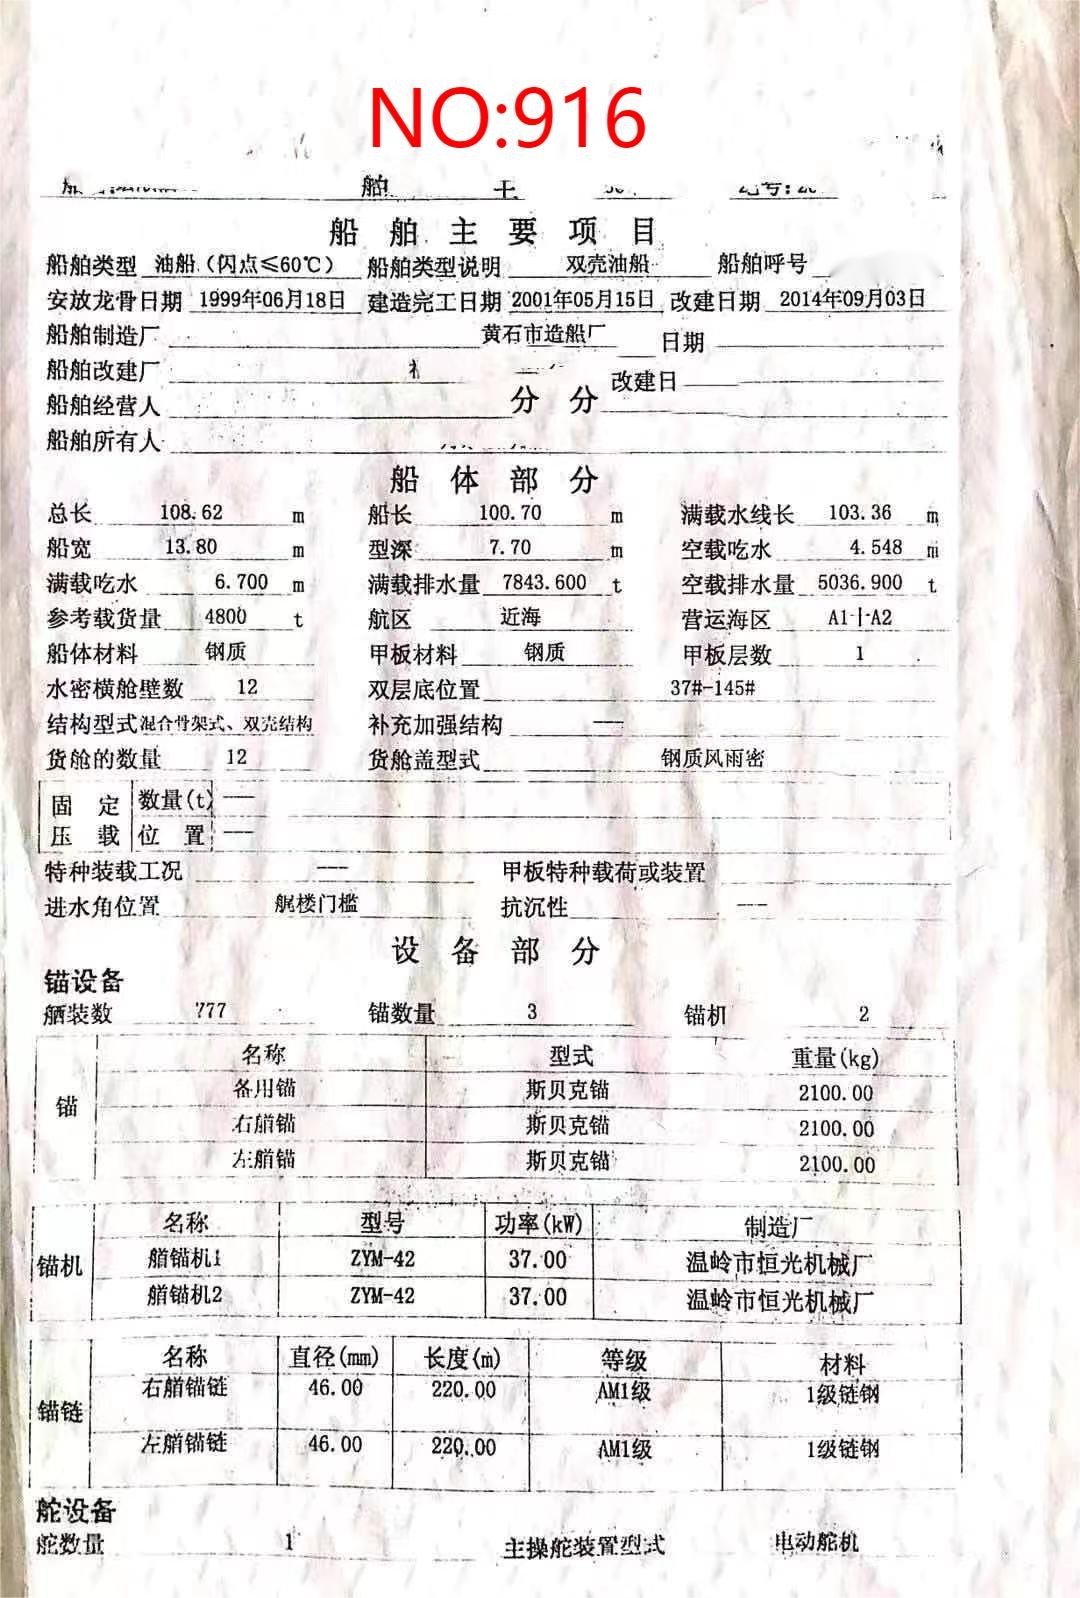 NO:916
船舶主要项目
船舶类型 油船（闪点≤60℃） 船舶类型说明 双壳油船 船舶呼号
安放龙骨日期 1999年06月18日 建造完工日期 2001年05月15日 改建日期 2014年09月03日
船舶制造厂 黄石市造船厂 日期
船舶改建厂 改建日
船舶经营人 分 分
船舶所有人
船体部分
总长 108.62 m 船长 100.70 m 满载水线长 103.36 m
船宽 13.80 m 型深 7.70 m 空载吃水 4.548 m
满载吃水 6.700 m 满载排水量 7843.600 t 空载排水量 5036.900 t
参考载货量 4800 t 航区 近海 营运海区 A1+A2
船体材料 钢质 甲板材料 钢质 甲板层数 1
水密横舱壁数 12 双层底位置 37#-145#
结构型式 混合骨架式、双壳结构 补充加强结构 ——
货舱的数量 12 货舱盖型式 钢质风雨密
固定压载 数量(t) ——
位置 ——
特种装载工况 —— 甲板特种载荷或装置
进水角位置 艉楼门槛 抗沉性 ——
设备部分
锚设备
舾装数 777 锚数量 3 锚机 2
名称 型式 重量(kg)
锚 备用锚 斯贝克锚 2100.00
右艏锚 斯贝克锚 2100.00
左艏锚 斯贝克锚 2100.00
名称 型号 功率(kW) 制造厂
锚机 艏锚机1 ZYM-42 37.00 温岭市恒光机械厂
艏锚机2 ZYM-42 37.00 温岭市恒光机械厂
名称 直径(mm) 长度(m) 等级 材料
锚链 右艏锚链 46.00 220.00 AM1级 1级链钢
左艏锚链 46.00 220.00 AM1级 1级链钢
舵设备
舵数量 1 主操舵装置型式 电动舵机